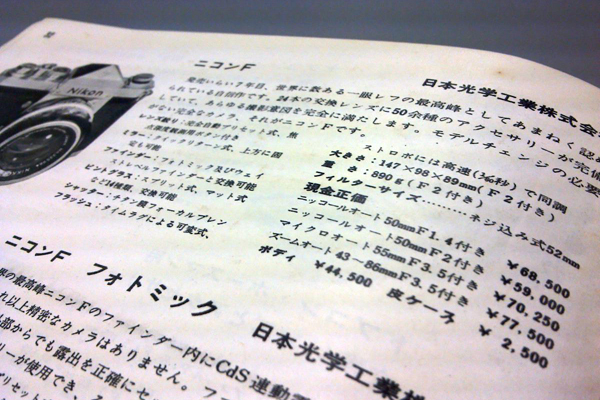 Nikon
ニコンF
日本光学工業株式会
発売いらい7年目、世界に数ある一眼レフの最高峰としてあまねく認め
られている自信作です。24本の交換レンズに50余種のアクセサリーが完備
していて、あらゆる撮影意図を完全に満たします。モデルチェンジの必要
がない完全なカメラ、それがニコンFです。
レンズ絞り：完全自動プリセット式、焦
点深度観測用ボタン付き
ミラー：クイックリターン式、上方に固
定も可能
ファインダー：フォトミック及びウェイ
ストレベルファインダーと交換可能
ピントグラス：スプリット式、マット式
など14種類、交換可能
シャッター：チタン製フォーカルプレン
フラッシュ：タイムラグによる可変式、
ストロボには高速(1/60秒)で同調
大きさ：147×98×89mm(F2付き)
重さ：890g(F2付き)
フィルターサイズ………ネジ込み式52mm
現金正価
ニッコールオート50mmF1.4付き ¥68,500
ニッコールオート50mmF2付き ¥59,000
マイクロオート55mmF3.5付き ¥70,250
ズームオート43～86mmF3.5付き ¥77,500
ボディ ¥44,500 皮ケース ¥2,500
ニコンF フォトミック
日本光学工業株
界の最高峰ニコンFのファインダー内にCdS連動
れ以上精密なカメラはありません。
部からでも露出を正確にセ
リーが使用でき、
プリセット